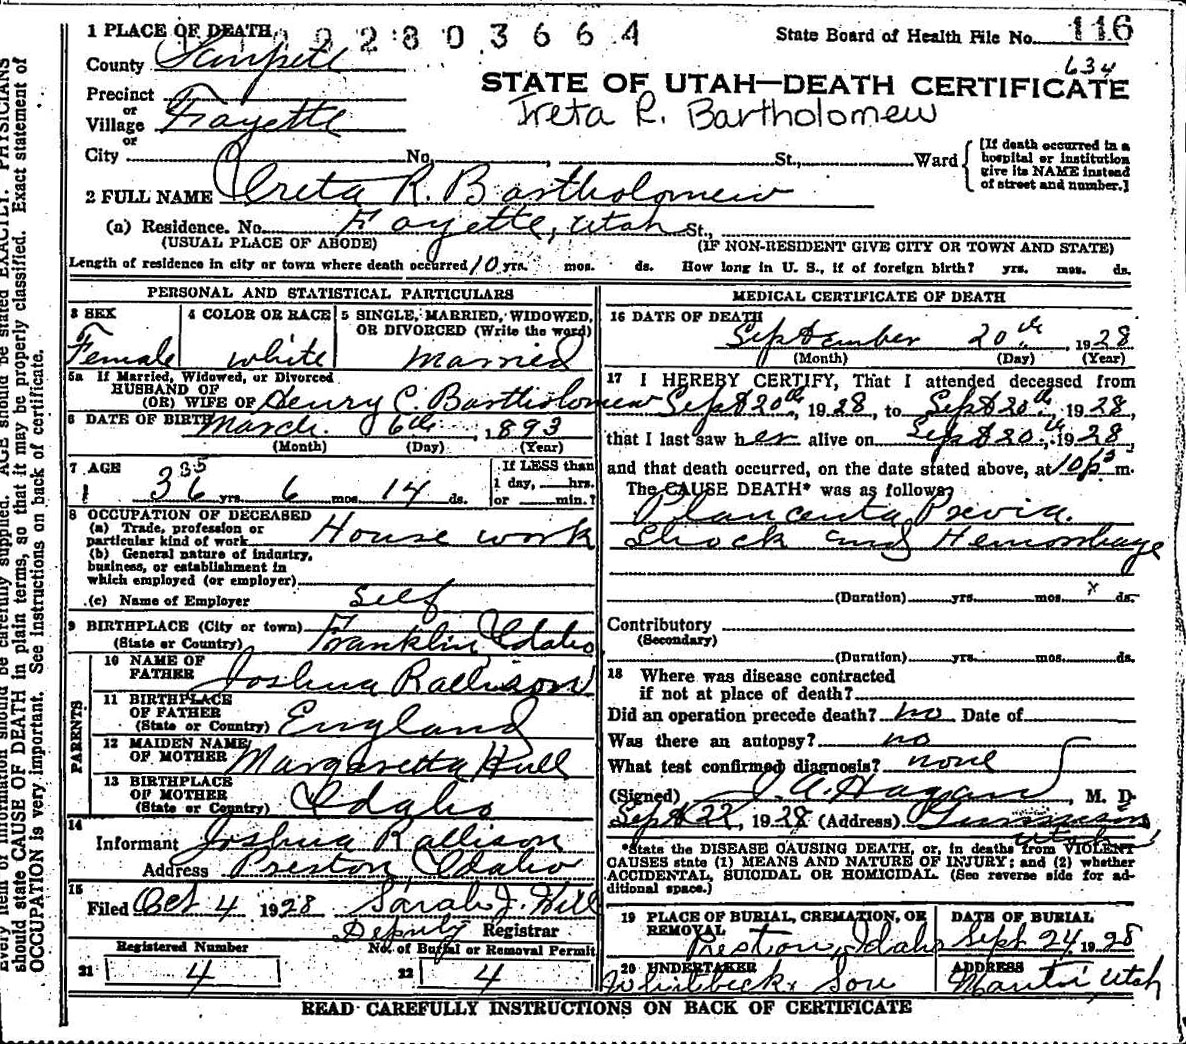 1 PLACE OF DEATH
2 8 0 3 6 6 4
State Board of Health File No. 116
County Sanpete
634
STATE OF UTAH—DEATH CERTIFICATE
Precinct
or
Village Fayette
Ireta R. Bartholomew
or
City No. , St., Ward
[If death occurred in a hospital or institution give its NAME instead of street and number.]
2 FULL NAME Ireta R. Bartholomew
(a) Residence. No. Fayette, Utah St.,
(USUAL PLACE OF ABODE) (IF NON-RESIDENT GIVE CITY OR TOWN AND STATE)
Length of residence in city or town where death occurred 10 yrs. mos. ds. How long in U. S., if of foreign birth? yrs. mos. ds.
PERSONAL AND STATISTICAL PARTICULARS
3 SEX
Female
4 COLOR OR RACE
White
5 SINGLE, MARRIED, WIDOWED, OR DIVORCED (Write the word)
Married
5a If Married, Widowed, or Divorced
HUSBAND OF
(OR) WIFE OF Henry C. Bartholomew
6 DATE OF BIRTH March 6th 1893
(Month) (Day) (Year)
7 AGE 36 35 yrs. 6 mos. 14 ds.
If LESS than
1 day, hrs.
or min.?
8 OCCUPATION OF DECEASED
(a) Trade, profession or
particular kind of work House work
(b) General nature of industry,
business, or establishment in
which employed (or employer)
(c) Name of Employer self
9 BIRTHPLACE (City or town)
(State or Country) Franklin, Idaho
PARENTS
10 NAME OF
FATHER Joshua Rallison
11 BIRTHPLACE
OF FATHER
(State or Country) England
12 MAIDEN NAME
OF MOTHER Margaretta Hull
13 BIRTHPLACE
OF MOTHER
(State or Country) Idaho
14
Informant Joshua Rallison
Address Preston, Idaho
15
Filed Oct 4 1928 Sarah J. Hill
Deputy Registrar
Registered Number No. of Burial or Removal Permit
21 4 22 4
MEDICAL CERTIFICATE OF DEATH
16 DATE OF DEATH
September 20th 1928
(Month) (Day) (Year)
17 I HEREBY CERTIFY, That I attended deceased from
Sept 20th, 1928, to Sept 20th, 1928,
that I last saw her alive on Sept 20th, 1928,
and that death occurred, on the date stated above, at 10 p m.
The CAUSE DEATH* was as follows:
Plancenta Previa.
Shock and Hemorrhage
(Duration) yrs. mos. x ds.
Contributory
(Secondary)
(Duration) yrs. mos. ds.
18 Where was disease contracted
if not at place of death?
Did an operation precede death? no Date of
Was there an autopsy? no
What test confirmed diagnosis? none
(Signed) J. A. Hagan, M. D.
Sept 22, 1928 (Address) Gunnison
Utah
*State the DISEASE CAUSING DEATH, or, in deaths from VIOLENT
CAUSES state (1) MEANS AND NATURE OF INJURY; and (2) whether
ACCIDENTAL, SUICIDAL OR HOMICIDAL. (See reverse side for ad-
ditional space.)
19 PLACE OF BURIAL, CREMATION, OR
REMOVAL
Preston, Idaho
DATE OF BURIAL
Sept 24 1928
20 UNDERTAKER
Whitbeck & Son
ADDRESS
Manti, Utah
READ CAREFULLY INSTRUCTIONS ON BACK OF CERTIFICATE
be carefully supplied. AGE should be stated EXACTLY. PHYSICIANS
should state CAUSE OF DEATH in plain terms, so that it may be properly classified. Exact statement of
OCCUPATION is very important. See instructions on back of certificate.